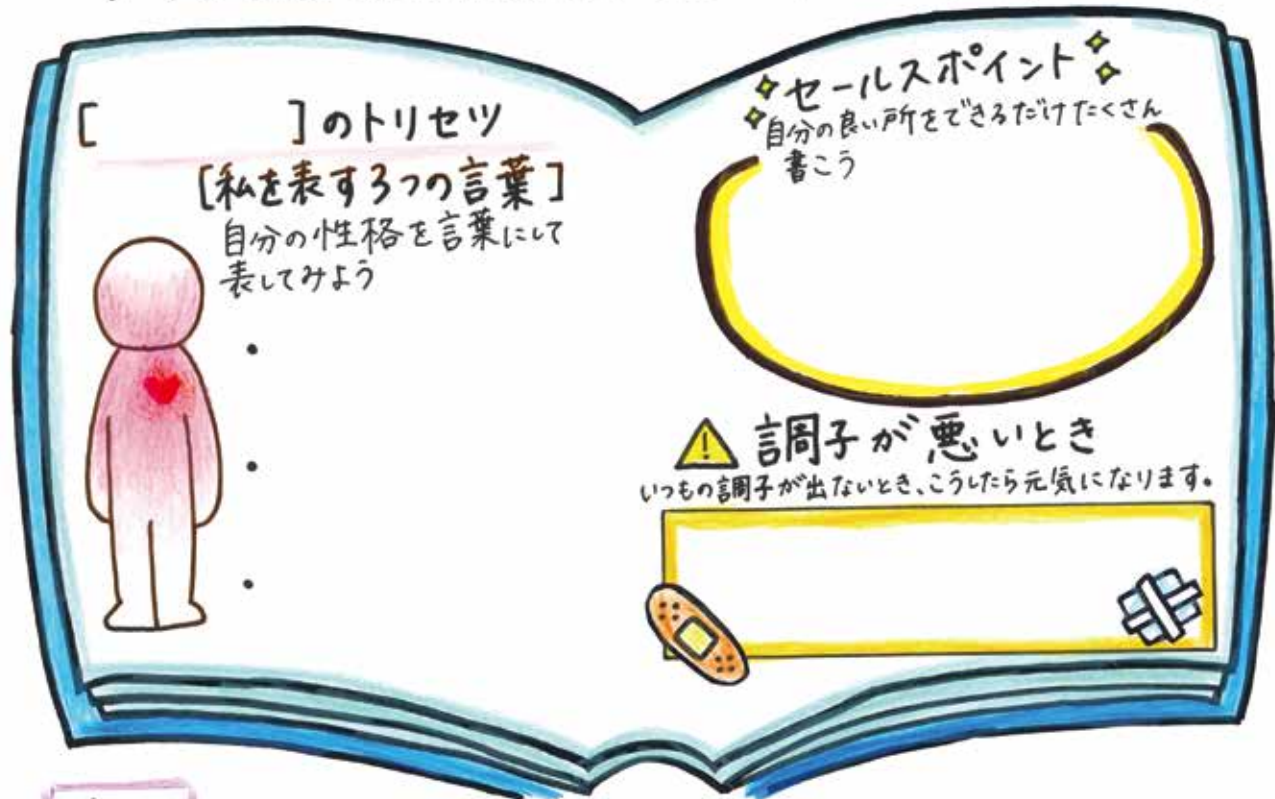 [ ]のトリセツ
[私を表す3つの言葉]
自分の性格を言葉にして
表してみよう
・
・
・
セールスポイント
自分の良い所をできるだけたくさん
書こう
調子が悪いとき
いつもの調子が出ないとき、こうしたら元気になります。